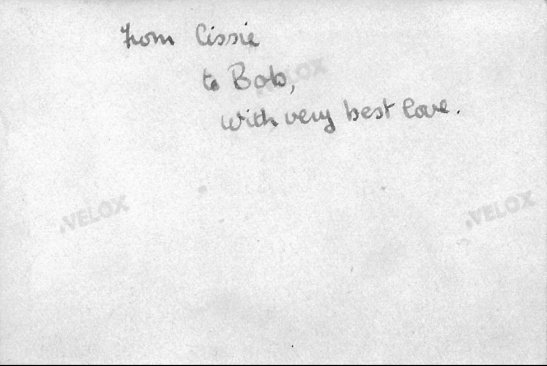 from Cissie
to Bob,
with very best love.
VELOX
VELOX
VELOX